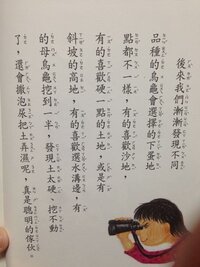 後來我們漸漸發現不同
品種的烏龜會選擇的下蛋地
點都不一樣，有的喜歡沙地，
有的喜歡硬一點的土地，或是有
斜坡的高地，有的喜歡選水溝邊，有
的母烏龜挖到一半，發現土太硬、挖不動
了，還會撒泡尿把土弄濕呢，真是聰明的傢伙。